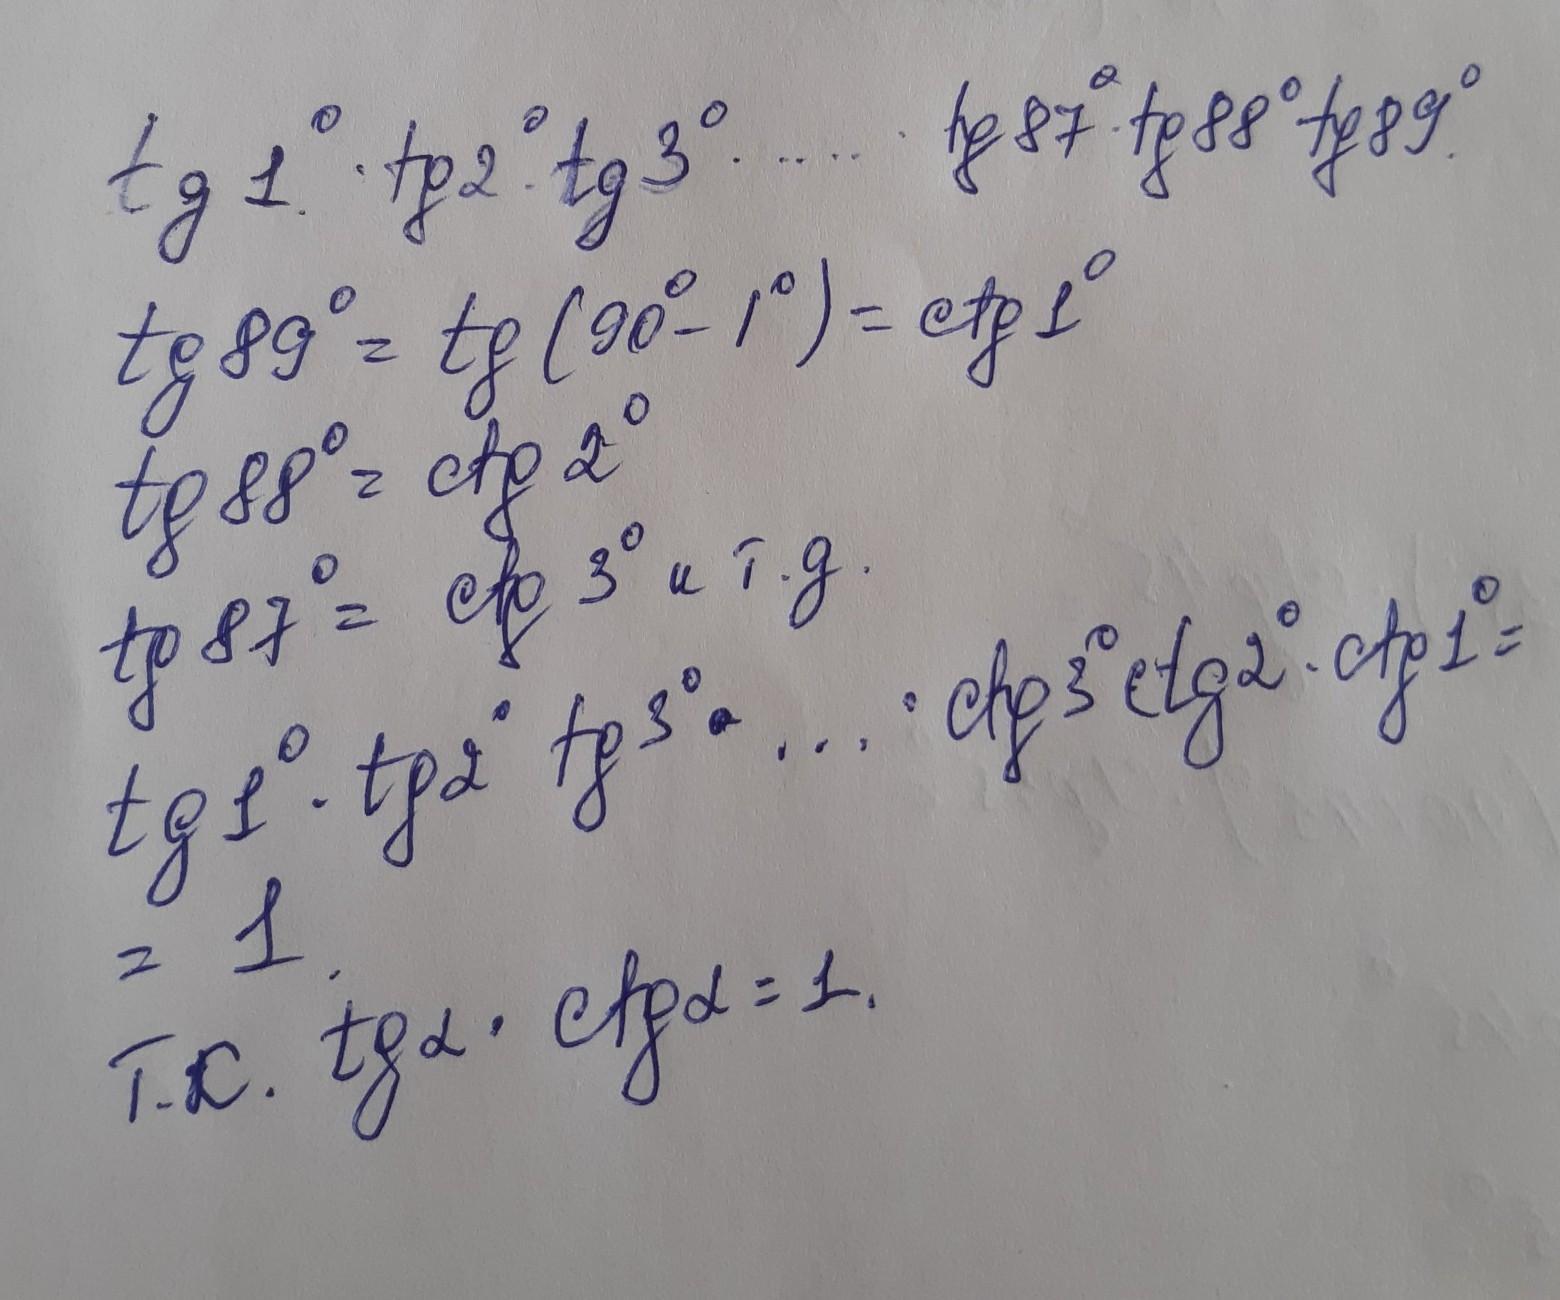 tg 1° · tg 2° · tg 3° · ..... · tg 87° · tg 88° tg 89°.
tg 89° = tg (90° - 1°) = ctg 1°
tg 88° = ctg 2°
tg 87° = ctg 3° и т.д.
tg 1° · tg 2° tg 3° · ... · ctg 3° ctg 2° · ctg 1° =
= 1.
т.к. tg α · ctg α = 1.